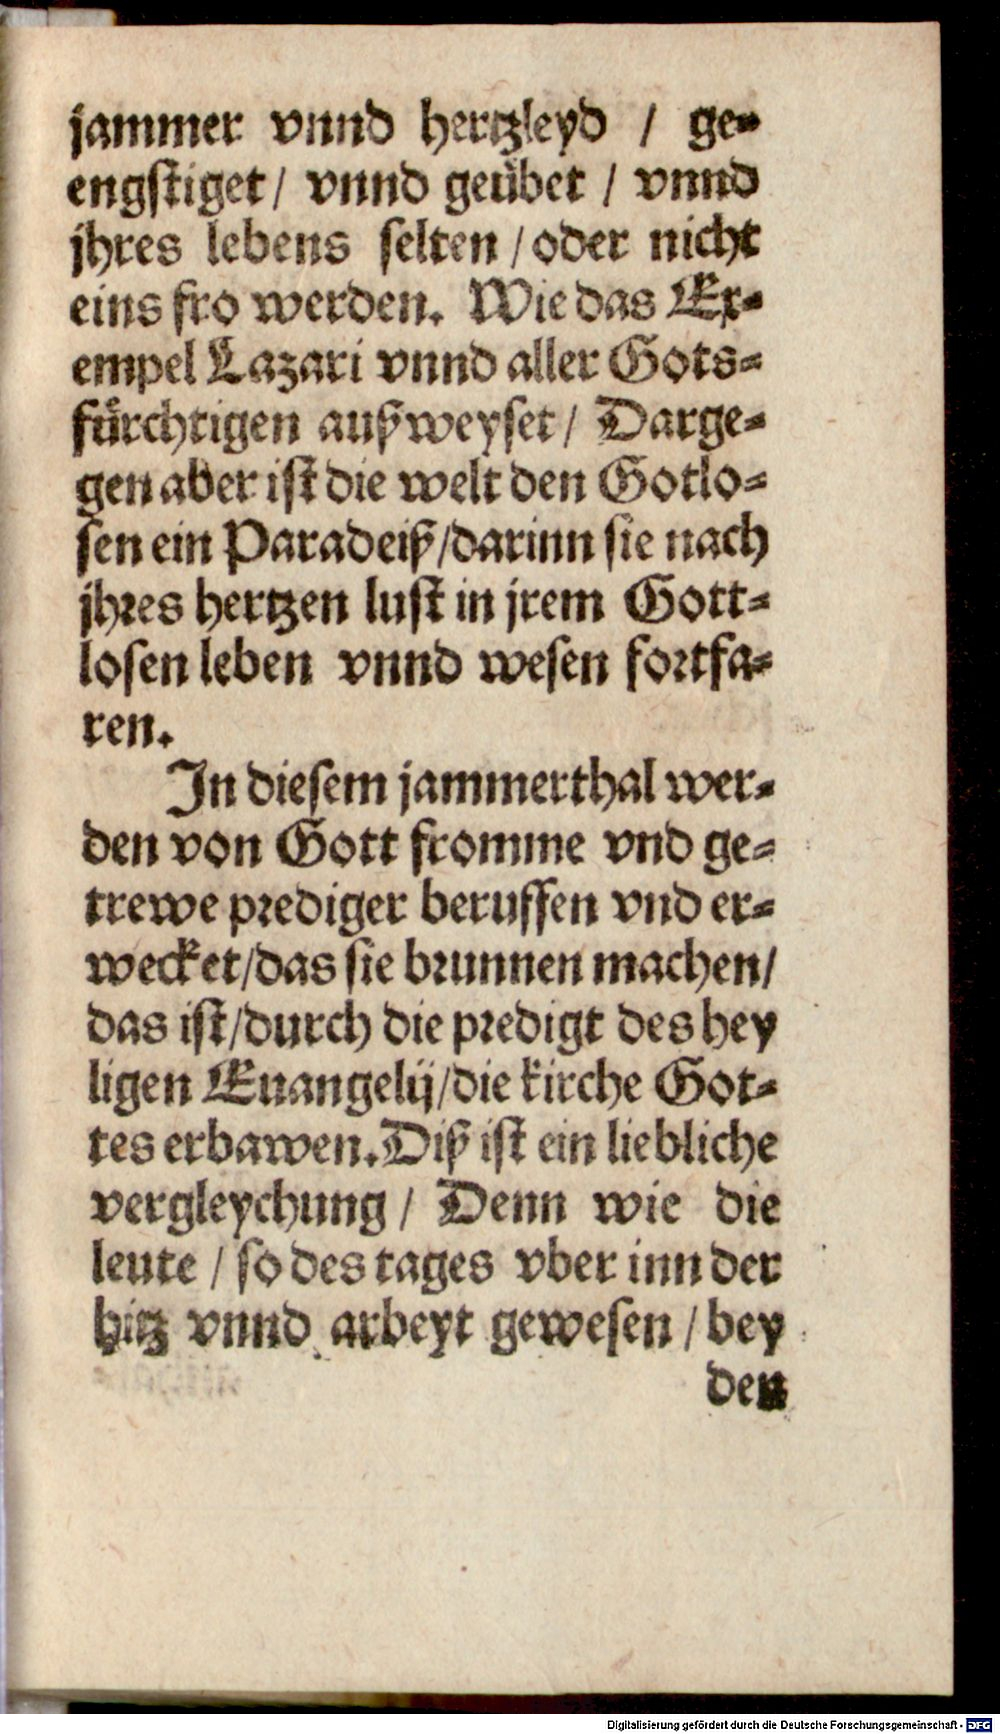 jammer vnnd hertzleyd / ge-
engstiget / vnnd geübet / vnnd
jhres lebens selten / oder nicht
eins fro werden. Wie das Ex-
empel Lazari vnnd aller Gots-
fürchtigen außweyset / Darge-
gen aber ist die welt den Gotlo-
sen ein Paradeiß / darinn sie nach
jhres hertzen lust in jrem Gott-
losen leben vnnd wesen fortfa-
ren.
In diesem jammerthal wer-
den von Gott fromme vnd ge-
trewe prediger beruffen vnd er-
wecket / das sie brunnen machen /
das ist / durch die predigt des hey
ligen Euangelij / die kirche Got-
tes erbawen. Diß ist ein liebliche
vergleychung / Denn wie die
leute / so des tages vber inn der
hitz vnnd arbeyt gewesen / bey
den
Digitalisierung gefördert durch die Deutsche Forschungsgemeinschaft - DFG